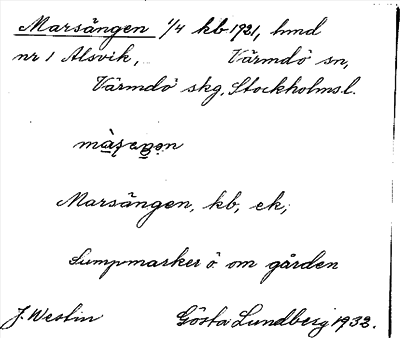 Marsängen 1/4 kb 1921, hmd
nr 1 Alsvik, Värmdö sn,
Värmdö skg, Stockholms l.
Marsängen, kb, ek,
Sumpmarker ö om gården
J. Westin Gösta Lundberg 1932.